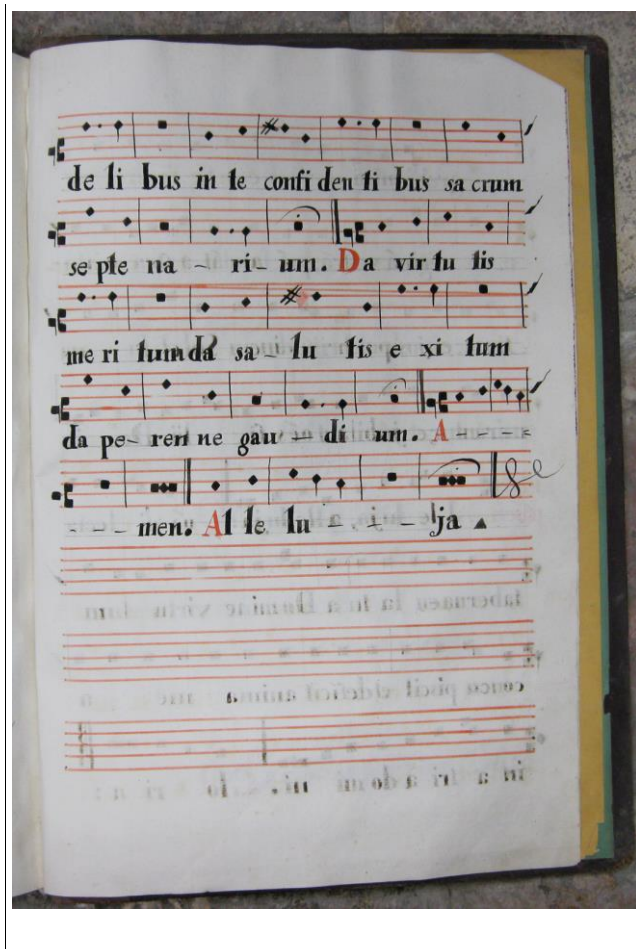 de li bus in te confi den ti bus sa crum
se pte na – ri – um. Da vir tu tis
me ri tum da sa – lu tis e xi tum
da pe – ren ne gau – di um. A - - - -
- - - men. Al le lu - - - ja